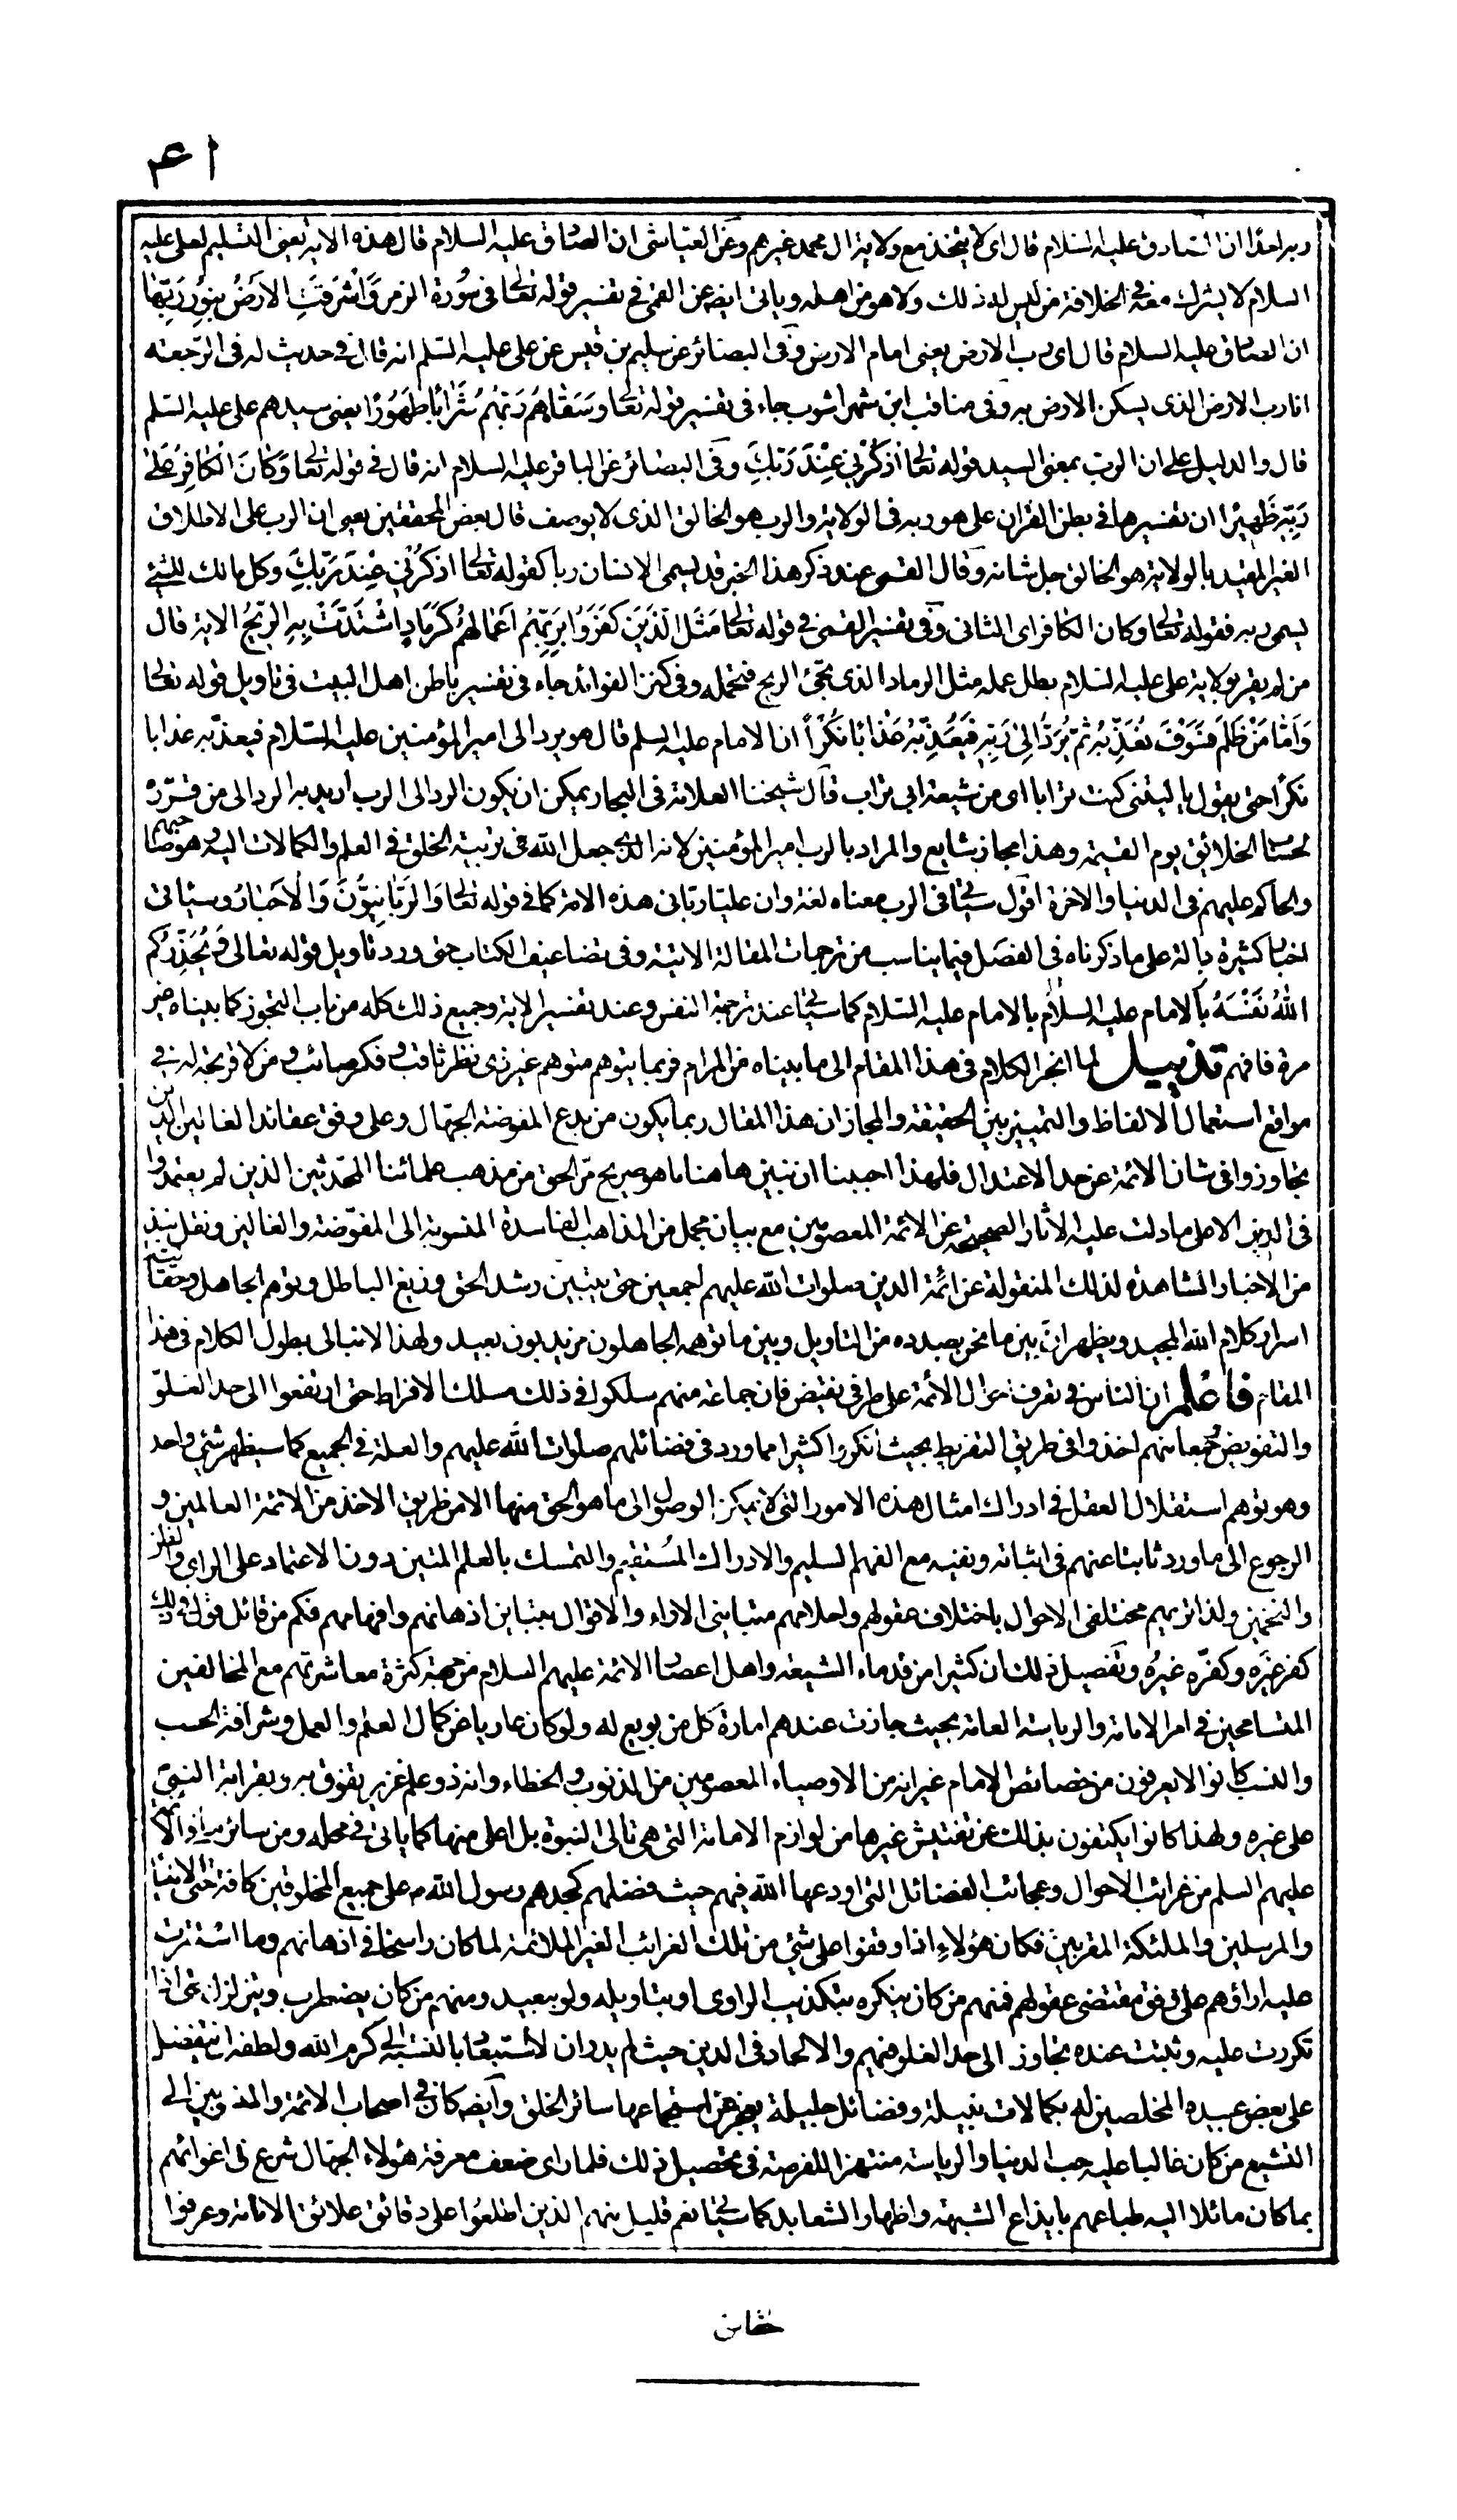 ۴۱
ربه احدا ان الصادق عليه السلام قال اى لا يتخذ مع ولاية ال محمد غيرهم وعن العياشى ان الصادق عليه السلام قال هذه الاية يعنى التسليم لعلى عليه
السلام لا يشرك معه فى الخلافة من ليس له ذلك ولا هو من اهله وياتى ايضا عن القمى فى تفسير قوله تعالى فى سورة الزمر وَاَشْرَقَتِ الْاَرْضُ بِنُورِ رَبِّهَا
ان الصادق عليه السلام قال اى رب الارض يعنى امام الارض وفى البصائر عن سليم بن قيس عن على عليه السلم انه قال فى حديث له فى الرجعة
انا رب الارض الذى يسكن الارض به وفى مناقب ابن شهراشوب جاء فى تفسير قوله تعالى وَسَقَاهُمْ رَبُّهُمْ شَرَابًا طَهُورًا يعنى سيدهم على عليه السلم
قال والدليل على ان الرب بمعنى السيد قوله تعالى اُذْكُرْنِى عِنْدَ رَبِّكَ وفى البصائر عن الباقر عليه السلام انه قال فى قوله تعالى وَكَانَ الْكَافِرُ عَلَى
رَبِّهِ ظَهِيرًا ان تفسيرها فى بطن القران على هو ربه فى الولاية والرب هو الخالق الذى لا يوصف قال بعض المحققين يعنى ان الرب على الاطلاق
الغير المقيد بالولاية هو الخالق جل شانه وقال القمى عند ذكر هذا الخبر قد يسمى الانسان ربا كقوله تعالى اذكُرْنِى عِنْدَ رَبِّكَ وكل مالك للشئ
يسمى ربه فقوله تعالى وكان الكافر اى الثانى وفى تفسير القمى فى قوله تعالى مَثَلُ الَّذِينَ كَفَرُوا بِرَبِّهِمْ اَعْمَالُهُمْ كَرَمَادٍ اشْتَدَّتْ بِهِ الرِّيحُ الاية قال
من لم يقر بولاية على عليه السلام بطل عمله مثل الرماد الذى تجئ الريح فتحمله وفى كنز الفوائد جاء فى تفسير باطن اهل البيت فى تاويل قوله تعالى
وَاَمَّا مَنْ ظَلَمَ فَسَوْفَ نُعَذِّبُهُ ثُمَّ يُرَدُّ اِلَى رَبِّهِ فَيُعَذِّبُهُ عَذَابًا نُكْرًا ان الامام عليه السلم قال هو يرد الى امير المؤمنين عليه السلام فيعذبه عذابا
نكرا حتى يقول يا ليتنى كنت ترابا اى من شيعة ابى تراب قال شيخنا العلامة فى البحار يمكن ان يكون الرد الى الرب اريد به الرد الى من قرره
لحساب الخلائق يوم القيمة وهذا مجاز شايع والمراد بالرب امير المؤمنين لانه الذى جعل الله فى تربية الخلق فى العلم والكمالات اليه وهو صاحبهم
والحاكم عليهم فى الدنيا والاخرة اقول سياتى فى الرب معناه لغة وان عليا ربانى هذه الامة كما فى قوله تعالى وَالرَّبَّانِيُّونَ وَالْاَحْبَارُ وسياتى
اخبار كثيرة دالة على ما ذكرناه فى الفصل فيما يناسب من ترجمات المقالة الاتية وفى تضاعيف الكتاب حتى ورد تاويل قوله تعالى وَيُحَذِّرُكُمُ
اللهُ نَفْسَهُ بالامام عليه السلام بالامام عليه السلام كما سياتى عند ترجمة النفس وعند تفسير الاية وجميع ذلك كله من باب التجوز كما بيناه غير
مرة فافهم تذييل لما انجر الكلام فى هذا المقام الى ما بيناه من المرام فربما يتوهم متوهم غير ذى نظر ثاقب وفكر صائب ومن لا قريحة له فى
مواقع استعمال الالفاظ والتمييز بين الحقيقة والمجاز ان هذا المقال ربما يكون من بدع المفوضة الجهال وعلى وفق عقائد الغالين الذين
تجاوزوا فى شان الائمة عن حد الاعتدال فلهذا احببنا ان نبين هاهنا ما هو صريح مر الحق من مذهب علمائنا المحدثين الذين لم يعتمدوا
فى الدين الا على ما دلت عليه الاثار الصحيحة عن الائمة المعصومين مع بيان مجمل من المذاهب الفاسدة المنسوبة الى المفوضة والغالين ونقل نبذ
من الاخبار الشاهدة لذلك المنقولة عن ائمة الدين صلوات الله عليهم اجمعين حتى يتبين رشد الحق وزيغ الباطل وتوهم الجاهل
اسرار كلام الله المجيد ويظهر ان بين ما نحن بصدده من التاويل وبين ما توهمه الجاهلون مزيد بون بعيد ولهذا لا نبالى بطول الكلام فى هذا
المقام فاعلم ان الناس فى تعرف احوال الائمة على طرفى نقيض فان جماعة منهم سلكوا فى ذلك مسلك الافراط حتى ارتفعوا الى حد الغلو
والتفويض وجمعا منهم اخذوا فى طريق التفريط بحيث انكروا كثيرا مما ورد فى فضائلهم صلوات الله عليهم والعلة فى الجميع كما سيظهر شئ واحد
وهو توهم استقلال العقل فى ادراك امثال هذه الامور التى لا يمكن الوصول الى ما هو الحق منها الا من طريق الاخذ من الائمة العالمين و
الرجوع الى ما ورد ثابتا عنهم فى اثباته ونفيه مع الفهم السليم والادراك المستقيم والتمسك بالعلم المتين دون الاعتماد على الراى والظن
والتخمين ولذا تريهم مختلفى الاحوال باختلاف عقولهم واحلامهم متباينى الاراء والاقوال بتباين اذهانهم وافهامهم فكم من قائل قول فى ذلك
كفر غيره وكفره غيره وتفصيل ذلك ان كثيرا من قدماء الشيعة واهل اعصار الائمة عليهم السلام من جهة كثرة معاشرتهم مع المخالفين
المتسامحين فى امر الامامة والرياسة العامة بحيث جازت عندهم امارة كل من بويع له ولو كان عاريا من كمال العلم والعمل وشرافة الحسب
والنسب كانوا لا يعرفون من خصائص الامام غير انه من الاوصياء المعصومين من الذنوب والخطاء وانه ذو علم غزير يفوق به وبقرابة النبى
على غيره ولهذا كانوا يكتفون بذلك عن تفتيش غيرها من لوازم الامامة التى هى تالى النبوة بل اعلى منها كما ياتى فى محله ومن سائر
عليهم السلم من غرائب الاحوال وعجائب الفضائل التى اودعها الله فيهم حيث فضلهم كجدهم رسول الله م على جميع المخلوقين كافة حتى الانبياء
والمرسلين والملئكة المقربين فكان هؤلاء اذا وقفوا على شئ من تلك الغرائب الغير الملائمة لما كان راسخا فى اذهانهم وما استقرت
عليه اراؤهم على وفق مقتضى عقولهم فمنهم من كان ينكره بتكذيب الراوى او بتاويله ولو ببعيد ومنهم من كان يضطرب ويتزلزل حتى اذا
تكررت عليه وثبتت عنده تجاوز الى حد الغلو فيهم والالحاد فى الدين حيث لم يدر ان لا استبعاد بالنسبة الى كرم الله ولطفه ان يتفضل
على بعض عبيده المخلصين له بكمالات نبيلة وفضائل جليلة يعجز عن استجماعها سائر الخلق وايضا كان فى اصحاب الائمة والمنسوبين الى
التشيع من كان غالبا عليه حب الدنيا والرياسة منتهزا للفرصة فى تحصيل ذلك فلما راى ضعف معرفة هؤلاء الجهال شرع فى اغوائهم
بما كان مائلا اليه طباعهم بابداع الشبهة واظهار الشعابد كما سياتى نعم قليل منهم الذين اطلعوا على دقائق علائق الامامة وعرفوا